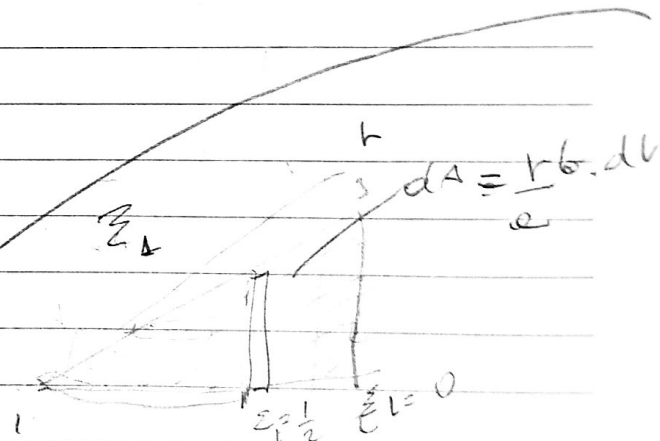 r
3
dA = r/e b. dr
ξ₁
1
ξ₁ = 1/2
ξ1 = 0